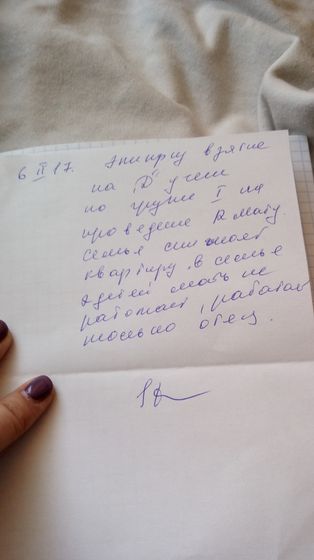 6 II 17. Эпикриз взятие
на "D" учет
по группе I на
проведение R манту.
семья снимает
квартиру. в семье
2 детей мать не
работает, работает
только отец.